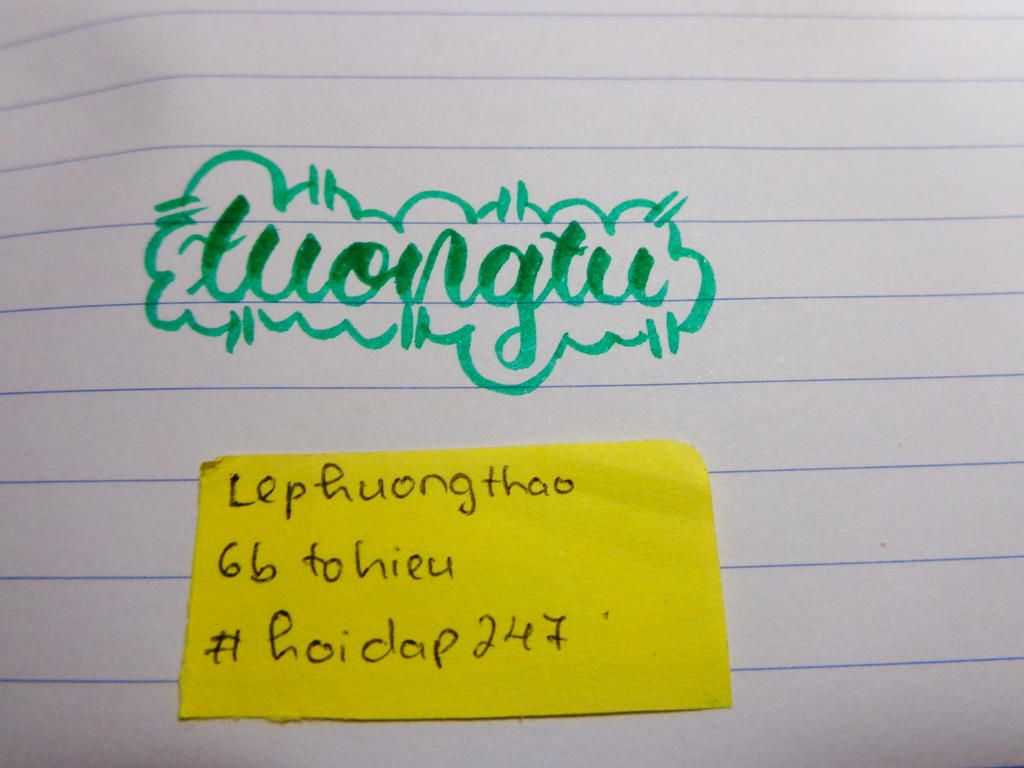 tuongtu
Lephuongthao
6b tohieu
# hoidap247